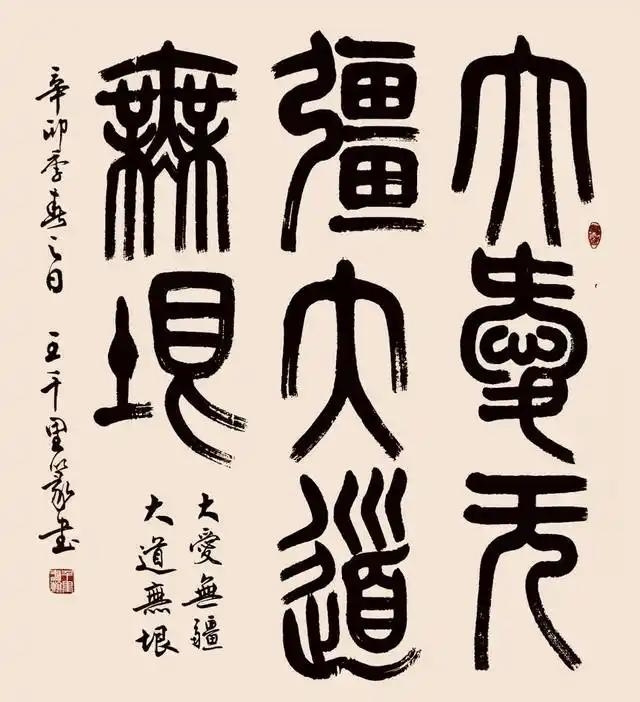 大愛无
彊大道
無垠
大愛無疆
大道無垠
辛卯季春之日 王千里篆書